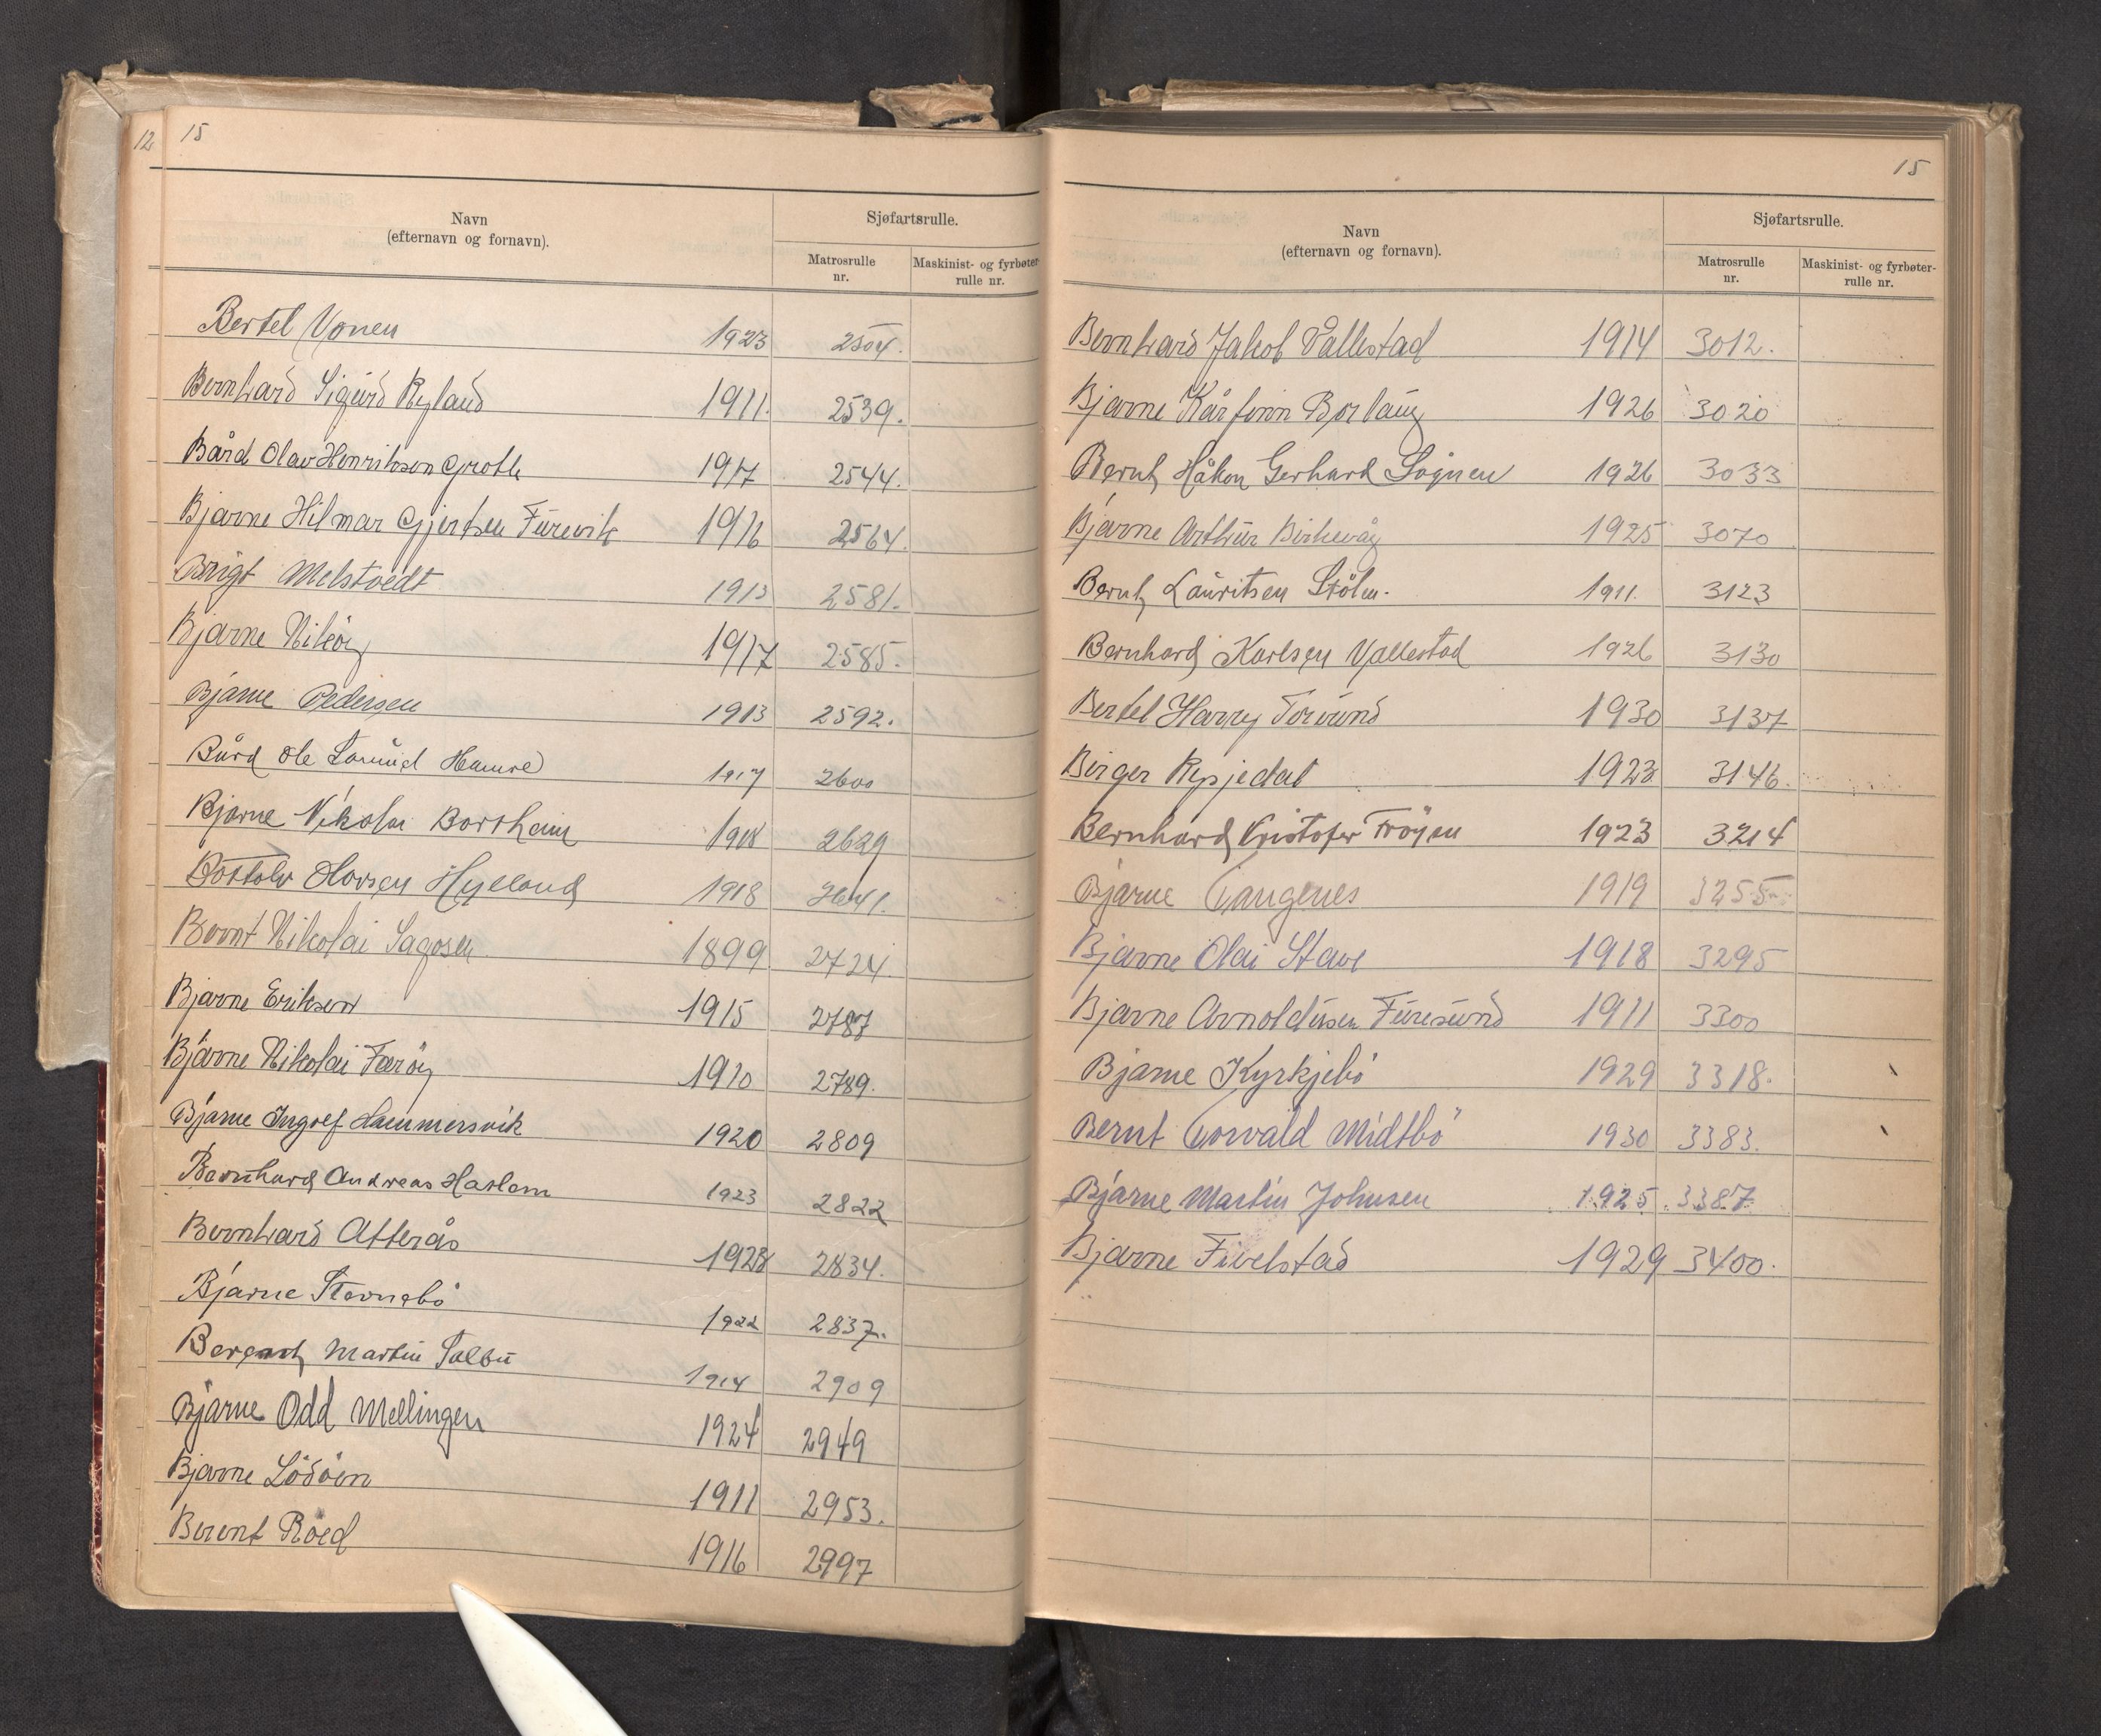 12
15
Navn
(efternavn og fornavn).
Sjøfartsrulle.
Matrosrulle
nr.
Maskinist- og fyrbøter-
rulle nr.
Bertel Vonen 1923 2504.
Bernhard Sigurd Ryland 1911. 2539.
Bård Olav Henriksen Groth 1917 2544.
Bjarne Hilmar Gjertsen Furevik 1916 2564.
Brigt Melstvedt 1913 2581.
Bjarne Niköy 1917 2585.
Bjarne Pedersen 1913 2592.
Bård Ole Hamre 1917 2600
Bjarne Nikolai Borsheim 1918 2629
Hylland 1918 2641.
Bernt Nikolai Sagosen 1899 2724.
Bjarne Eriksen 1915 2787
Bjarne Nikolai Færöy 1910 2789.
Bjarne Ingolf Hammersvik 1920 2809
Bernhard Andreas Haslem 1923 2822
Bernhard Atterås 1928 2834.
Bjarne Stavnebö 1922 2837.
Martin Salbu 1914 2909
Bjarne Odd Mellingen 1924 2949
Bjarne Lödöen 1911 2953.
Berent Röed 1916 2997
15
Navn
(efternavn og fornavn).
Sjøfartsrulle.
Matrosrulle
nr.
Maskinist- og fyrbøter-
rulle nr.
Bernhard Jakob Vallestad 1914 3012.
Bjarne Kårfinn Borlaug 1926 3020
Bernt Håkon Gerhard Sognen 1926 3033
Bjarne Arthur Birkevåg 1925 3070
Bernt Lauritsen Stölen. 1911. 3123
Bernhard Karlsen Vallestad 1926 3130
Bertel Harry Torsund 1930 3137
Birger Repjedal 1923 3146.
Bernhard Kristofer Fröyen 1923 3214
Bjarne Tangenes 1919 3255
Bjarne Olai Stave 1918 3295
Bjarne Arnoldusen Furesund 1911 3300
Bjarne Kyrkjebö 1929 3318.
Bernt Torvald Midtbö 1930 3383.
Bjarne Martin Johnsen 1925. 3387
Bjarne Fivelstad 1929 3400.